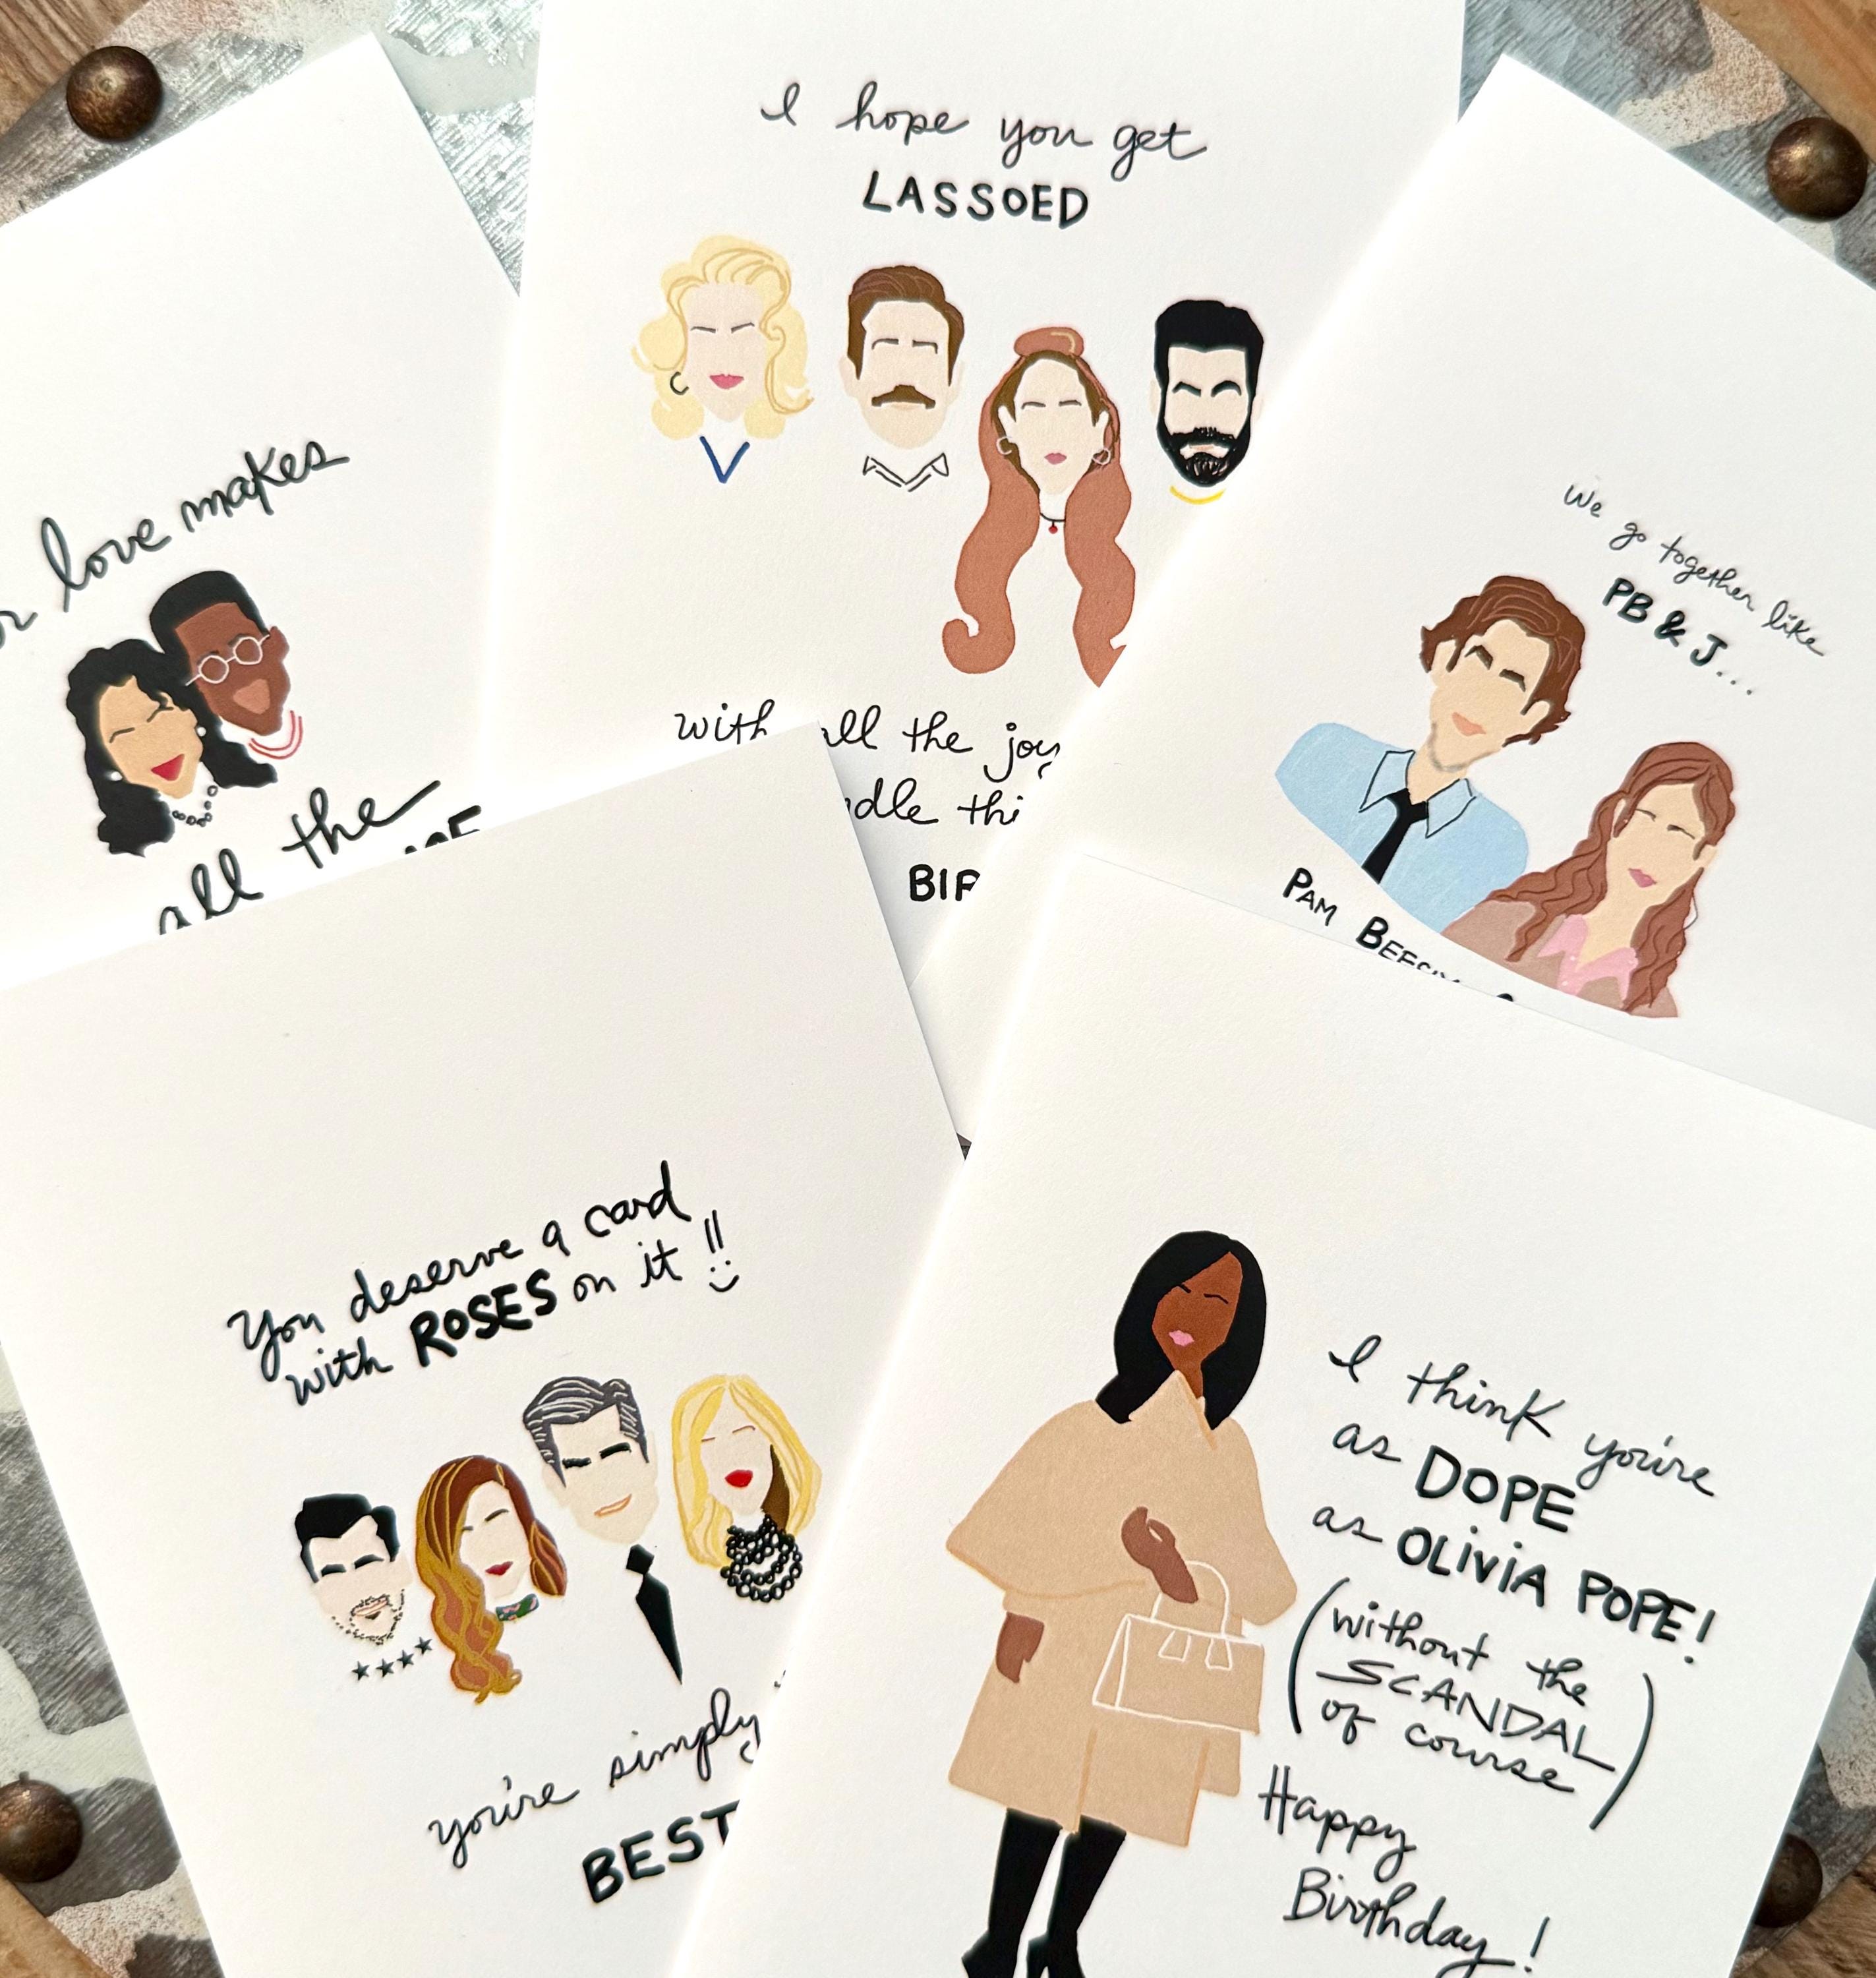 I hope you get
LASSOED
with all the joy
thi
love makes
all the
We go together like
PB & J...
PAM
You deserve a card
with ROSES on it !!
you're simply
BEST
I think you're
as DOPE
as OLIVIA POPE!
(without the
SCANDAL
of course)
Happy
Birthday!